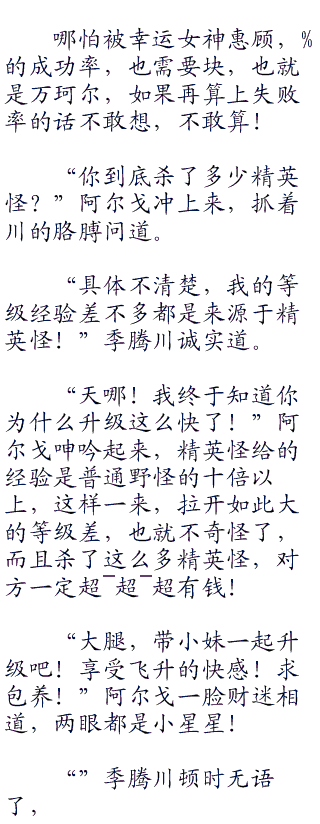 哪怕被幸运女神惠顾，%
的成功率，也需要块，也就
是万珂尔，如果再算上失败
率的话不敢想，不敢算！
“你到底杀了多少精英
怪？”阿尔戈冲上来，抓着
川的胳膊问道。
“具体不清楚，我的等
级经验差不多都是来源于精
英怪！”季腾川诚实道。
“天哪！我终于知道你
为什么升级这么快了！”阿
尔戈呻吟起来，精英怪给的
经验是普通野怪的十倍以
上，这样一来，拉开如此大
的等级差，也就不奇怪了，
而且杀了这么多精英怪，对
方一定超¯超¯超有钱！
“大腿，带小妹一起升
级吧！享受飞升的快感！求
包养！”阿尔戈一脸财迷相
道，两眼都是小星星！
“”季腾川顿时无语
了，